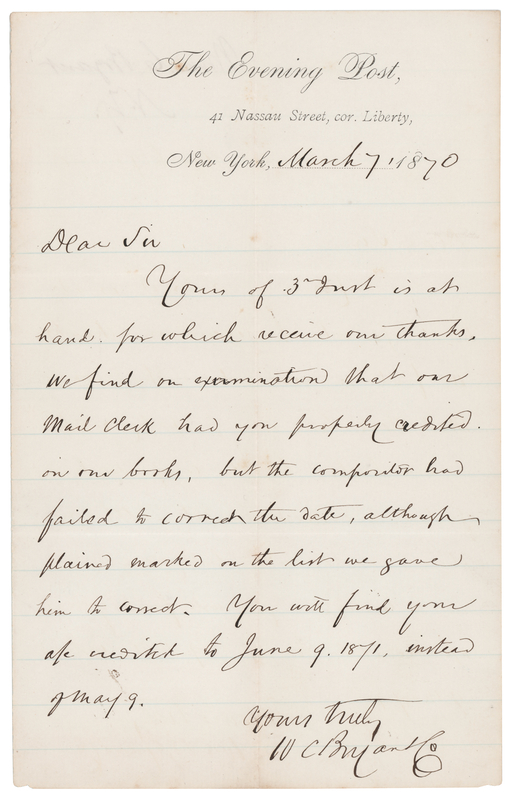 The Evening Post,
41 Nassau Street, cor. Liberty,
New York, March 7, 1870
Dear Sir
Yours of 3rd Inst is at
hand. for which receive our thanks.
We find on examination that our
Mail Clerk had you properly credited.
on our books, but the compositor had
failed to correct the date, although
plained marked on the list we gave
him to correct. You will find your
a/c credited to June 9. 1871, instead
of May 9.
Yours truly
W C Bryant & Co